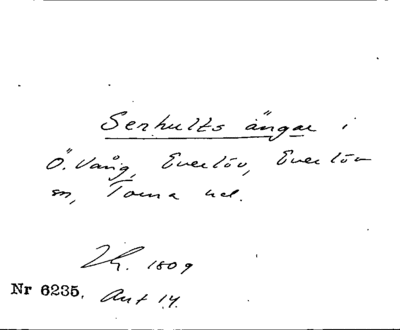 Serhults ängar i
Ö. Vång, Everlöv, Everlöv
sn, Torna hd.
1809
Nr 6235. Ant 14.